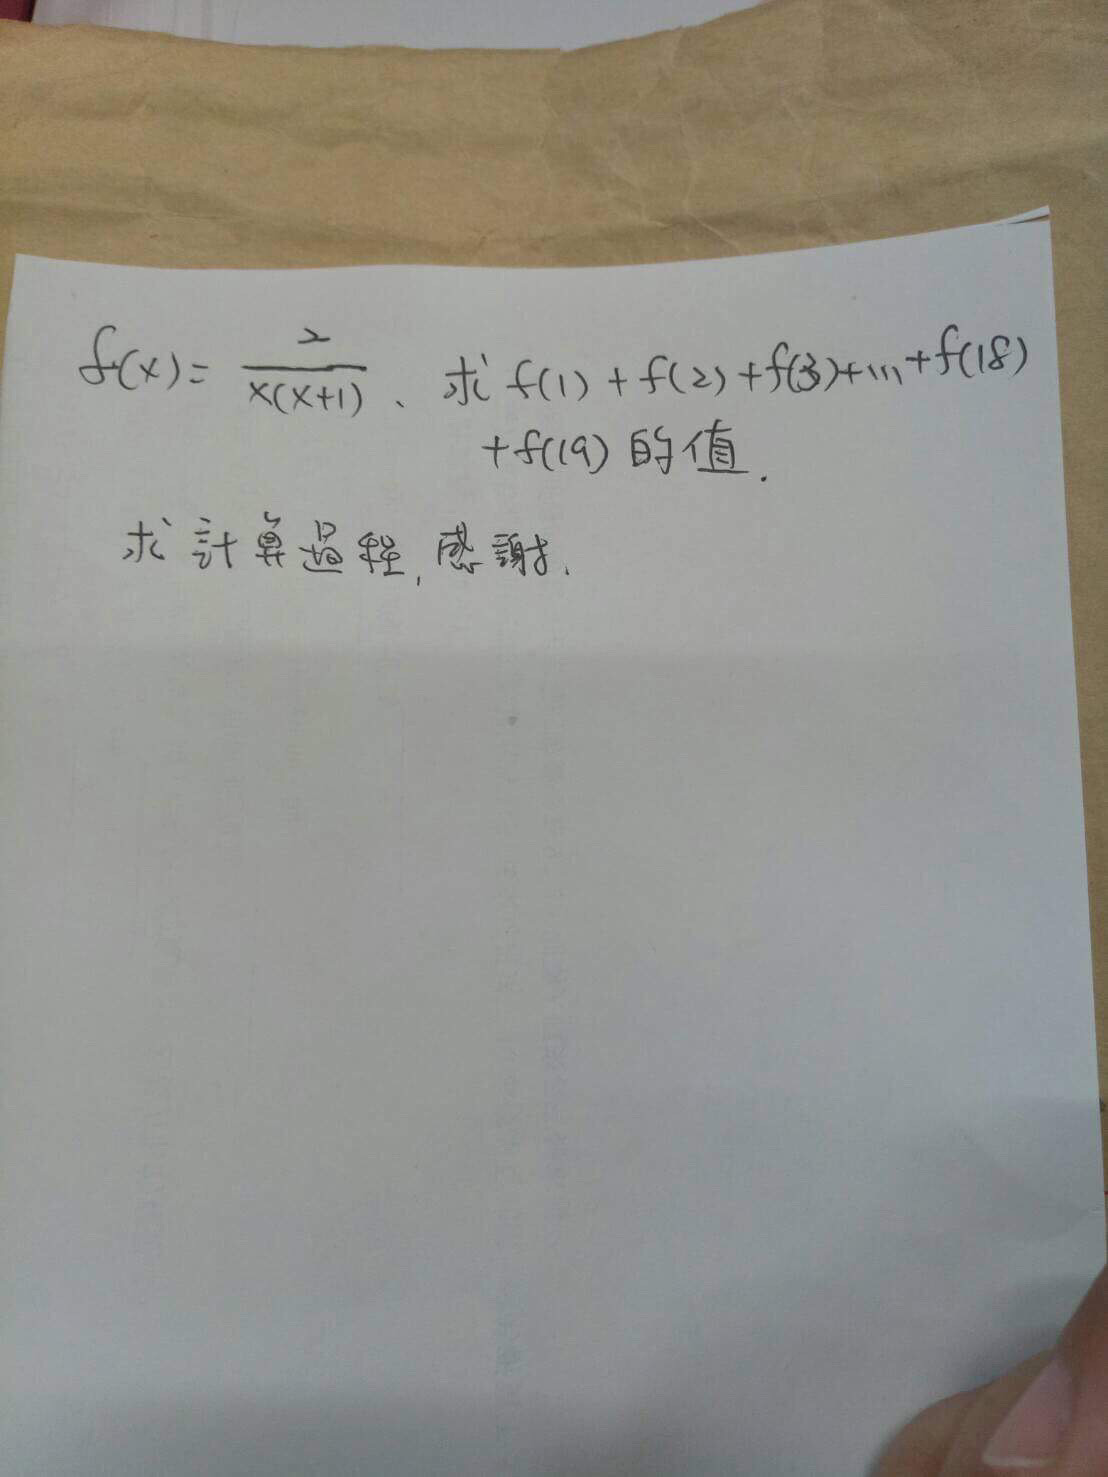 f(x)= 2/x(x+1)、求f(1)+f(2)+f(3)+...+f(18)
+f(19)的值.
求計算過程,感謝.